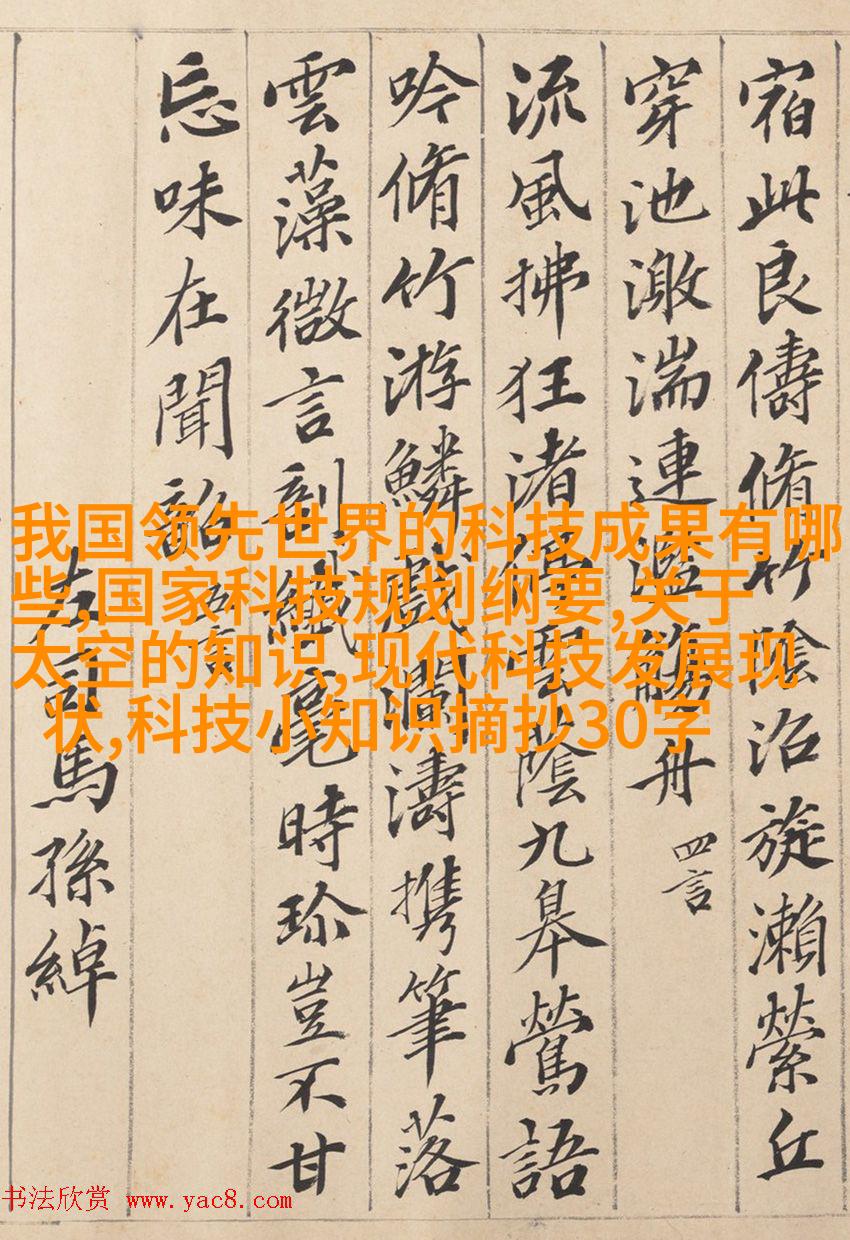 宿此良儔脩竹陰沼旋瀨縈丘
穿池激湍連濫觴舟 四言
流風拂狂渚停雲蔭九皋鶯語
吟脩竹游鱗戲瀾濤携筆落
雲藻微言剖纖毫時珍豈不甘
忘味在聞韶 五言
左司馬孫綽
我国领先世界的科技成果有哪
些,国家科技规划纲要,关于
太空的知识,现代科技发展现
状,科技小知识摘抄30字
书法欣赏 www.yac8.com